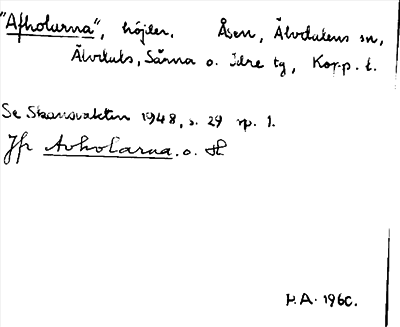 "Afholurna", höjder. Åsen, Älvdalens sn,
Älvdals, Särna o. Idre tg, Kopp. l.
Se Skansvakten 1948, s. 29 sp. 1.
Jfr Avholarna. o.
H.A. 1960.